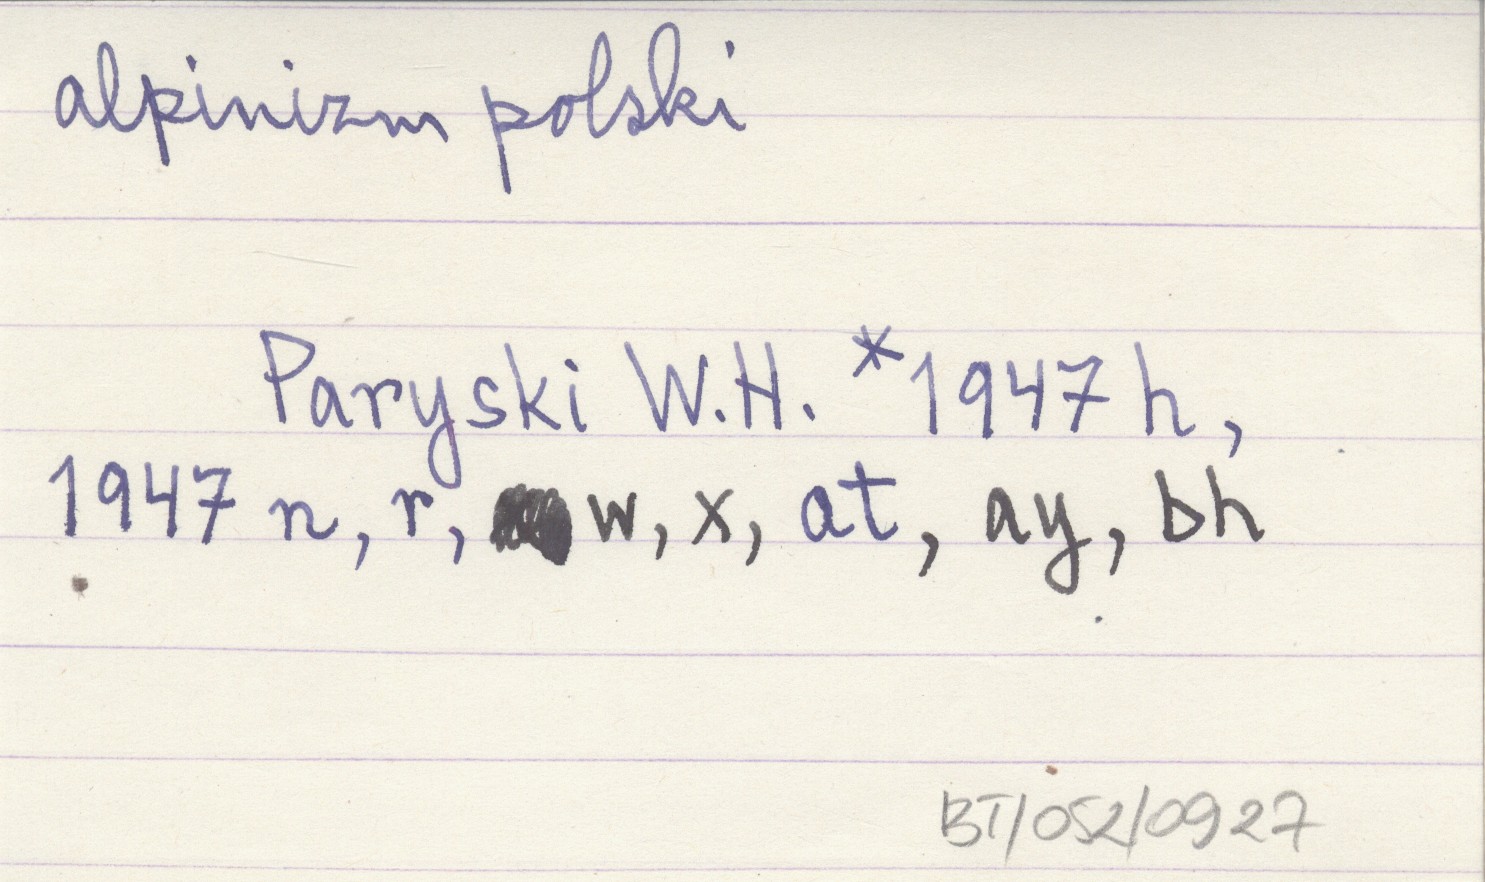 alpinizm polski
Paryski W.H. *1947 h,
1947 n, r, w, x, at, ay, bh
BT/052/0927